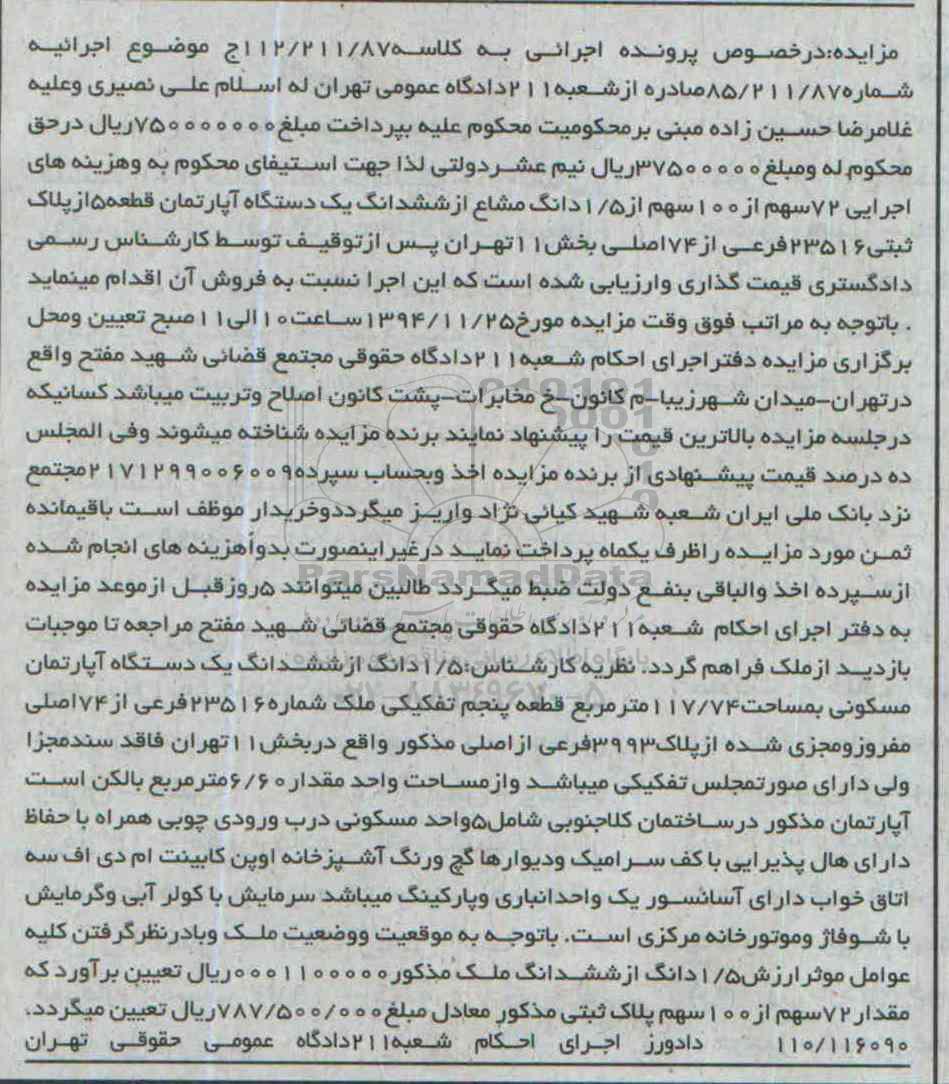 مزایده:درخصوص پرونده اجرائی به کلاسه۱۱۲/۲۱۱/۸۷اج موضوع اجرائیه
شماره۸۵/۲۱۱/۸۷صادره ازشعبه۲۱۱دادگاه عمومی تهران له اسلام علی نصیری وعلیه
غلامرضا حسین زاده مبنی برمحکومیت محکوم علیه بپرداخت مبلغ۷۵۰۰۰۰۰۰۰ریال درحق
محکوم له ومبلغ۳۷۵۰۰۰۰۰ریال نیم عشردولتی لذا جهت استیفای محکوم به وهزینه های
اجرایی ۷۲سهم از۱۰۰سهم از۱/۵دانگ مشاع ازششدانگ یک دستگاه آپارتمان قطعه۵ازپلاک
ثبتی۲۳۵۱۶فرعی از۷۴اصلی بخش۱۱تهران پس ازتوقیف توسط کارشناس رسمی
دادگستری قیمت گذاری وارزیابی شده است که این اجرا نسبت به فروش آن اقدام مینماید
. باتوجه به مراتب فوق وقت مزایده مورخ۱۳۹۴/۱۱/۲۵ساعت۱۰الی۱۱صبح تعیین ومحل
برگزاری مزایده دفتراجرای احکام شعبه۲۱۱دادگاه حقوقی مجتمع قضائی شهید مفتح واقع
درتهران-میدان شهرزیبا-م کانون-خ مخابرات-پشت کانون اصلاح وتربیت میباشد کسانیکه
درجلسه مزایده بالاترین قیمت را پیشنهاد نمایند برنده مزایده شناخته میشوند وفی المجلس
ده درصد قیمت پیشنهادی از برنده مزایده اخذ وبحساب سپرده۲۱۷۱۲۹۹۰۰۶۰۰۹مجتمع
نزد بانک ملی ایران شعبه شهید کیانی نژاد واریز میگرددوخریدار موظف است باقیمانده
ثمن مورد مزایده راظرف یکماه پرداخت نماید درغیراینصورت بدواًهزینه های انجام شده
ازسپرده اخذ والباقی بنفع دولت ضبط میگردد طالبین میتوانند ۵روزقبل ازموعد مزایده
به دفتر اجرای احکام شعبه۲۱۱دادگاه حقوقی مجتمع قضائی شهید مفتح مراجعه تا موجبات
بازدید ازملک فراهم گردد. نظریه کارشناس:۱/۵دانگ ازششدانگ یک دستگاه آپارتمان
مسکونی بمساحت۱۱۷/۷۴مترمربع قطعه پنجم تفکیکی ملک شماره۲۳۵۱۶فرعی از۷۴اصلی
مفروزومجزی شده ازپلاک۳۹۹۳فرعی ازاصلی مذکور واقع دربخش۱۱تهران فاقد سندمجزا
ولی دارای صورتمجلس تفکیکی میباشد وازمساحت واحد مقدار۶/۶۰مترمربع بالکن است
آپارتمان مذکور درساختمان کلاجنوبی شامل۵واحد مسکونی درب ورودی چوبی همراه با حفاظ
دارای هال پذیرایی باکف سرامیک ودیوارها گچ ورنگ آشپزخانه اوپن کابینت ام دی اف سه
اتاق خواب دارای آسانسور یک واحدانباری وپارکینگ میباشد سرمایش با کولر آبی وگرمایش
با شوفاژ وموتورخانه مرکزی است. باتوجه به موقعیت ووضعیت ملک وبادرنظرگرفتن کلیه
عوامل موثرارزش۱/۵دانگ ازششدانگ ملک مذکور۰۰۰۱۱۰۰۰۰۰ریال تعیین برآورد که
مقدار۷۲سهم از۱۰۰سهم پلاک ثبتی مذکور معادل مبلغ۷۸۷/۵۰۰/۰۰۰ریال تعیین میگردد.
۱۱۰/۱۱۶۰۹۰ دادورز اجرای احکام شعبه۲۱۱دادگاه عمومی حقوقی تهران
ParsNamadData